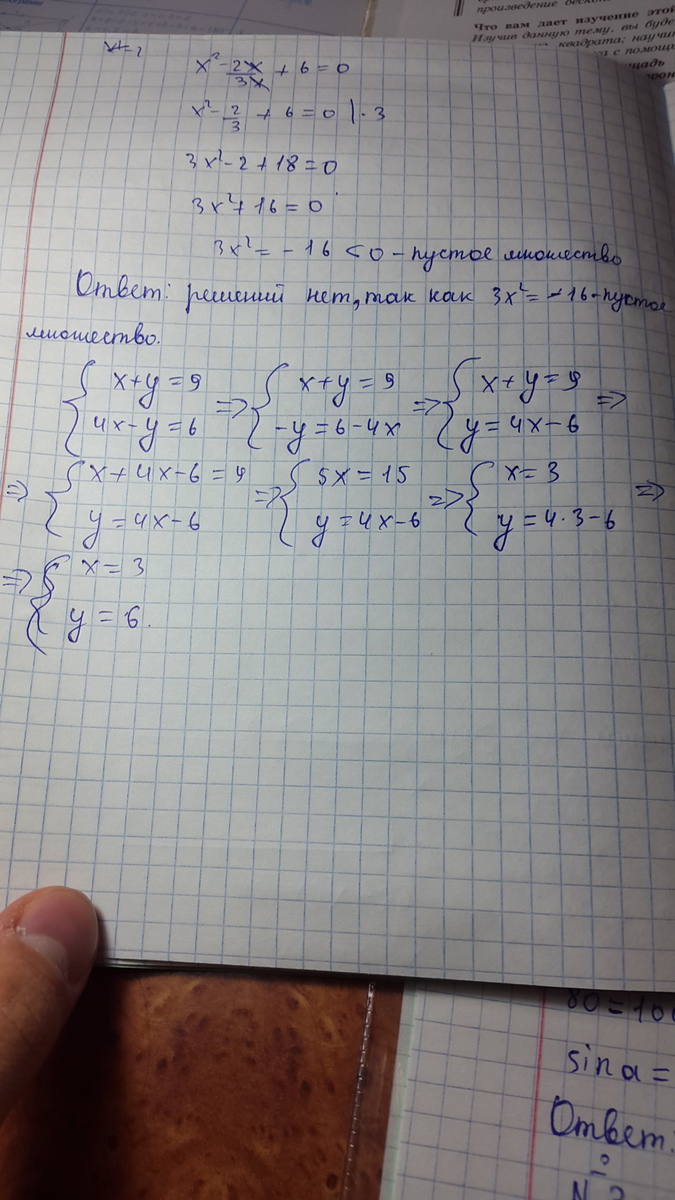 произведение
Что вам дает изучение этой
Изучив данную тему, вы буде
квадрата; научи
с помощь
щадь
x² - 2x/3x + 6 = 0
x² - 2/3 + 6 = 0 | · 3
3x² - 2 + 18 = 0
3x² + 16 = 0
3x² = - 16 < 0 - пустое множество
Ответ: решений нет, так как 3x² = - 16 - пустое
множество.
{ x+y = 9 => { x+y = 9 => { x+y = 9 =>
{ 4x-y = 6 { -y = 6-4x { y = 4x-6
=> { x+4x-6 = 9 => { 5x = 15 => { x = 3 =>
{ y = 4x-6 { y = 4x-6 { y = 4·3-6
=> { x = 3
{ y = 6.
80 = 100
sin a =
Ответ: